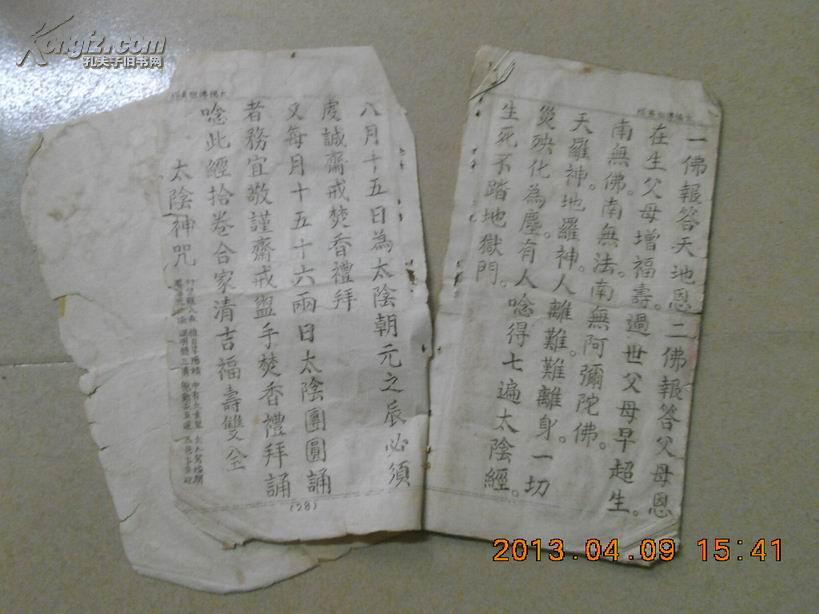 一佛報答天地恩二佛報答父母恩
在生父母增福壽。過世父母早超生。
南無佛。南無法。南無阿彌陀佛。
天羅神。地羅神。人離難。難離身。一切
災殃化為塵。有人唸得七遍太陰經。
生死不踏地獄門。
八月十五日為太陰朝元之辰必須
虔誠齋戒焚香禮拜
又每月十五十六兩日太陰團圓誦
者務宜敬謹齋戒盥手焚香禮拜誦
唸此經拾卷合家清吉福壽雙全
太陰神咒
(28)
Kongfz.com
孔夫子旧书网
2013.04.09 15:41